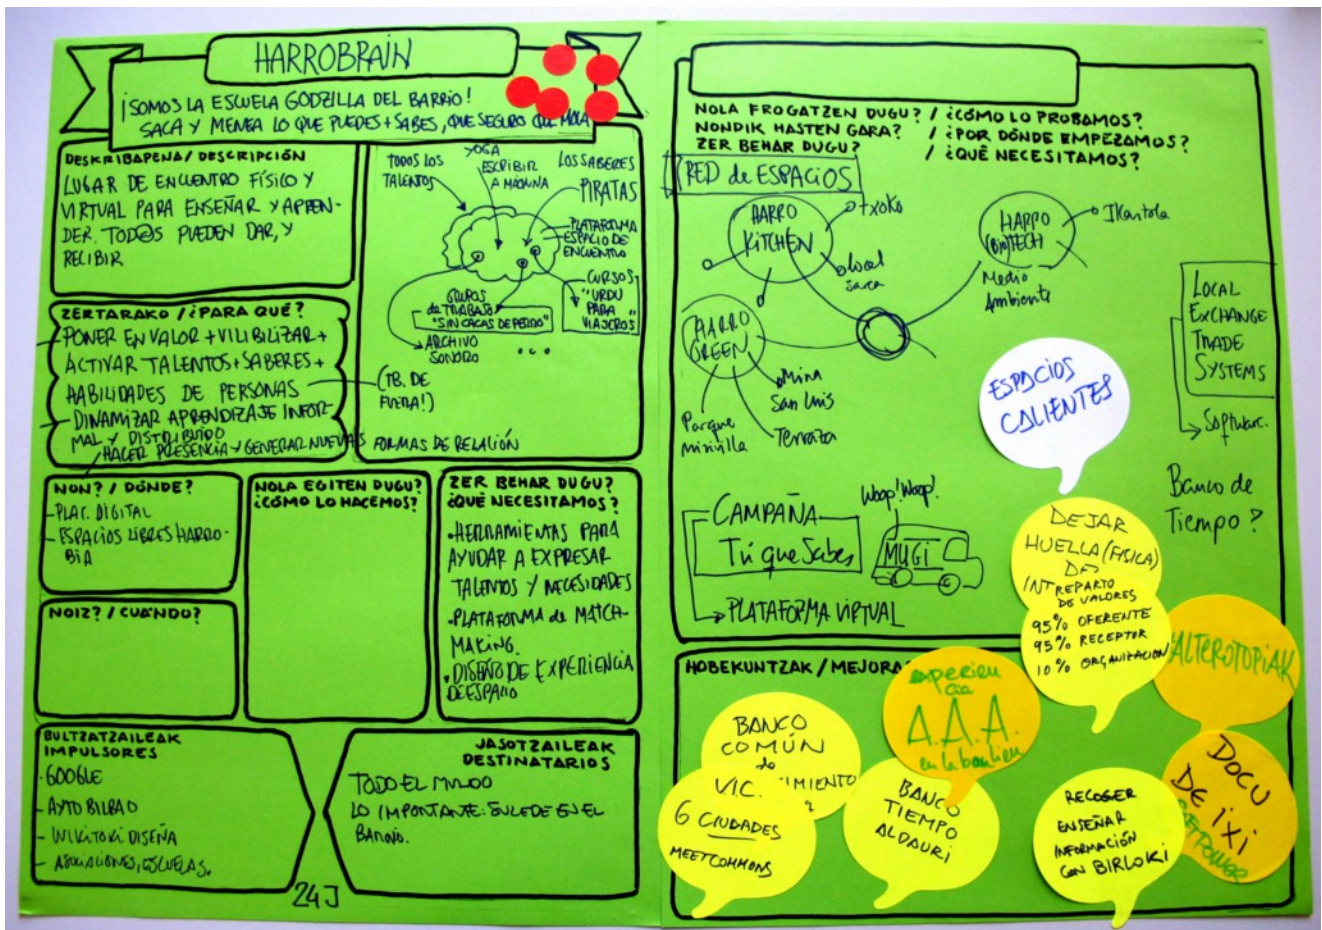 HARROBRAIN
¡SOMOS LA ESCUELA GODZILLA DEL BARRIO!
SACA Y MENEA LO QUE PUEDES + SABES, QUE SEGURO QUE MOLA
DESKRIBAPENA / DESCRIPCIÓN
LUGAR DE ENCUENTRO FÍSICO Y
VIRTUAL PARA ENSEÑAR Y APREN-
DER. TOD@S PUEDEN DAR, Y
RECIBIR
TODOS LOS
TALENTOS
YOGA
ESCRIBIR
A MÁQUINA
LOS SABERES
PIRATAS
PLATAFORMA
ESPACIO DE
ENCUENTRO
GRUPOS
de TRABAJO
"SIN CACAS DE PERRO"
CURSOS
"URDU
PARA
VIAJEROS"
ARCHIVO
SONORO
...
(TB. DE
FUERA!)
ZERTARAKO / ¿PARA QUÉ?
PONER EN VALOR + VILIBILIZAR +
ACTIVAR TALENTOS + SABERES +
HABILIDADES DE PERSONAS
- DINAMIZAR APRENDIZAJE INFOR-
MAL Y DISTRIBUIDO
HACER PRESENCIA Y GENERAR NUEVAS FORMAS DE RELACIÓN
NON? / DÓNDE?
- PLAT. DIGITAL
- ESPACIOS LIBRES HARRO-
BIA
NOIZ? / CUÁNDO?
NOLA EGITEN DUGU?
¿CÓMO LO HACEMOS?
ZER BEHAR DUGU?
¿QUÉ NECESITAMOS?
• HERRAMIENTAS PARA
AYUDAR A EXPRESAR
TALENTOS Y NECESIDADES
• PLATAFORMA de MATCH-
MAKING.
• DISEÑO DE EXPERIENCIA
DE ESPACIO
BULTZATZAILEAK
IMPULSORES
- GOOGLE
- AYTO BILBAO
- WIKITOKI DISEÑA
- ASOCIACIONES, ESCUELAS.
JASOTZAILEAK
DESTINATARIOS
TODO EL MUNDO
LO IMPORTANTE: SUCEDE EN EL
BARRIO.
24J
NOLA FROGATZEN DUGU? / ¿CÓMO LO PROBAMOS?
NONDIK HASTEN GARA? / ¿POR DÓNDE EMPEZAMOS?
ZER BEHAR DUGU? / ¿QUÉ NECESITAMOS?
RED de ESPACIOS
HARRO
KITCHEN
txoko
local
sarea
HARRO
(Bio)TECH
Ikastola
Medio
Ambiente
HARRO
GREEN
Mina
San Luis
Terraza
Parque
miravilla
LOCAL
EXCHANGE
TRADE
SYSTEMS
Software.
Banco de
Tiempo?
ESPACIOS
CALIENTES
CAMPAÑA
Tú que Sabes
PLATAFORMA VIRTUAL
Woop! Woop!
MUGI
DEJAR
HUELLA (FISICA)
REPARTO
DE VALORES
95% OFERENTE
95% RECEPTOR
10% ORGANIZACION
ALTEROTOPIAK
HOBEKUNTZAK / MEJORA
experien
cia
A.A.A.
en la banlieu
BANCO
COMÚN
de
IMIENTO
V.I.C.
6 CIUDADES
MEETCOMMONS
BANCO
TIEMPO
ALDAURI
RECOGER
ENSEÑAR
INFORMACIÓN
CON BIRLOKI
DOCU
DE iXi